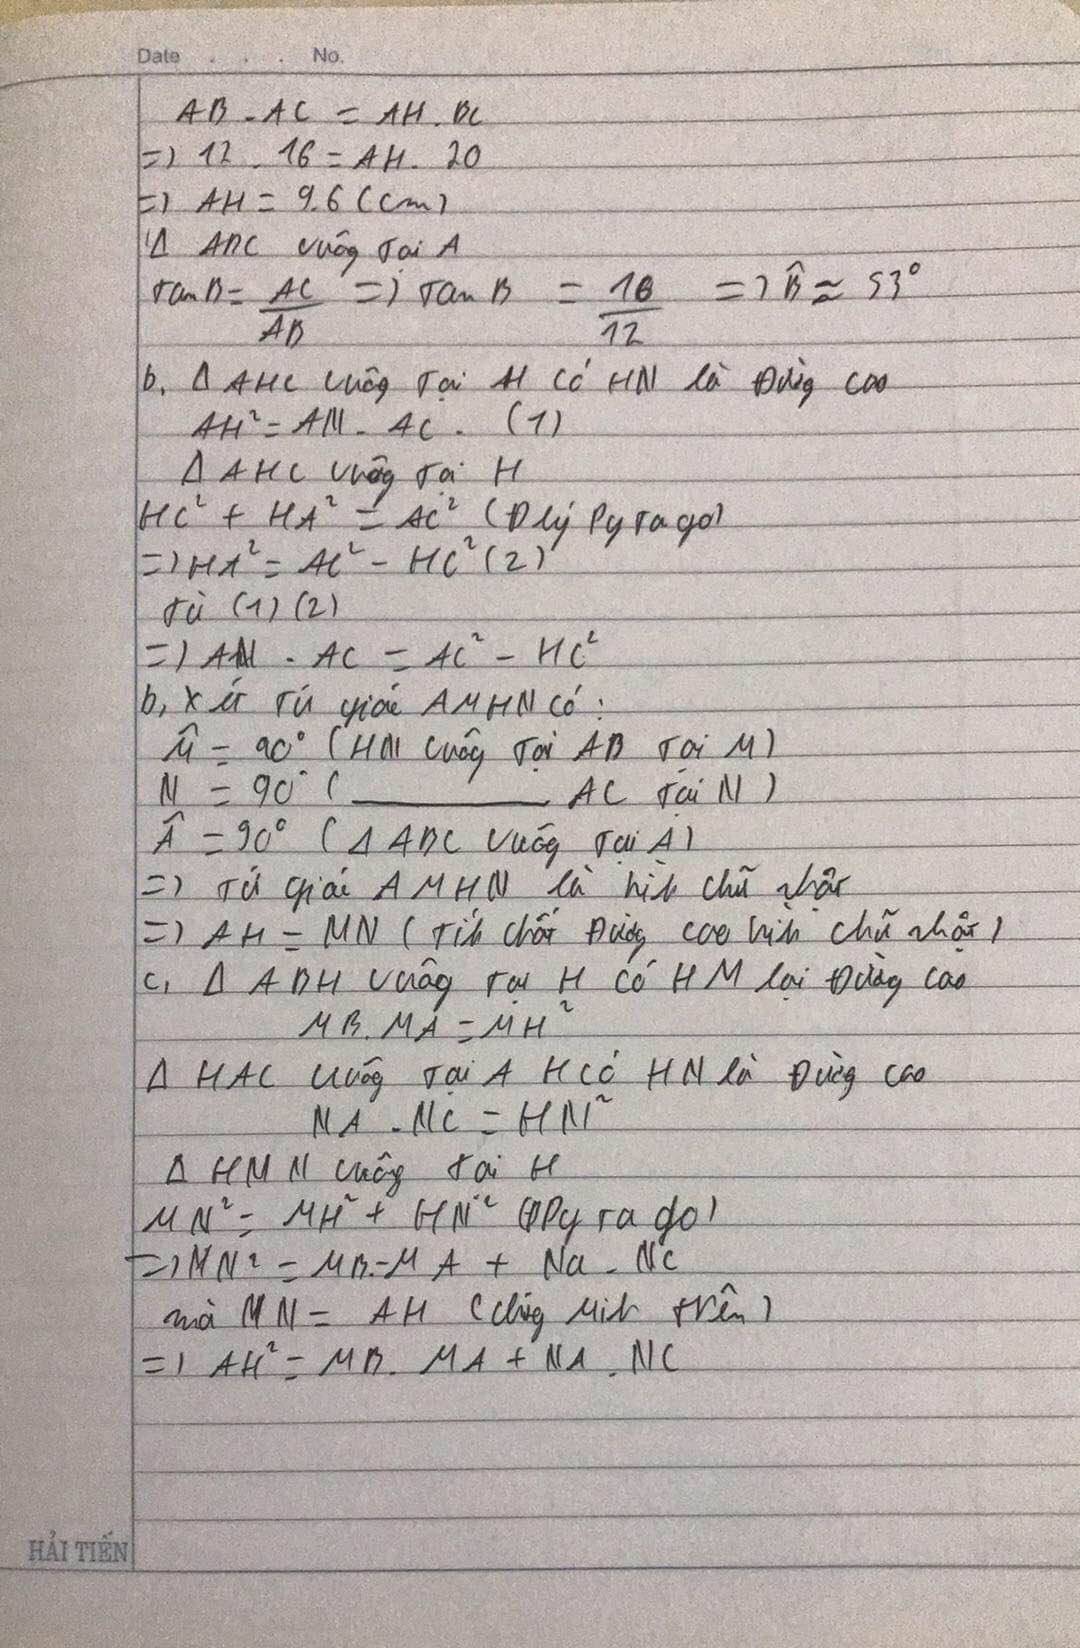 Date . . . No.
AB . AC = AH . BC
=) 12 . 16 = AH . 20
=) AH = 9.6 (cm)
Δ ABC vuông tại A
tanB = AC/AB =) tan B = 16/12 =) B̂ ≈ 53°
b, Δ AHC vuông tại H có HN là đường cao
AH² = AN . AC . (1)
Δ AHC vuông tại H
HC² + HA² = AC² (Đ lý Pytago)
=) HA² = AC² - HC² (2)
từ (1) (2)
=) AN . AC = AC² - HC²
b, xét tứ giác AMHN có :
M̂ = 90° (HN vuông tại AB tại M)
N = 90° ( ________ AC tại N )
Â = 90° ( Δ ABC vuông tại A)
=) tứ giác AMHN là hình chữ nhật
=) AH = MN ( tính chất đường cao hình chữ nhật )
c, Δ ABH vuông tại H có HM lại đường cao
MB. MA = MH²
Δ HAC vuông tại A H có HN là đường cao
NA . NC = HN²
Δ HMN vuông tại H
MN² = MH² + HN² (Pytago)
=) MN² = MB.MA + Na . NC
mà MN = AH (chứng minh trên)
=) AH² = MB. MA + NA . NC
HẢI TIẾN